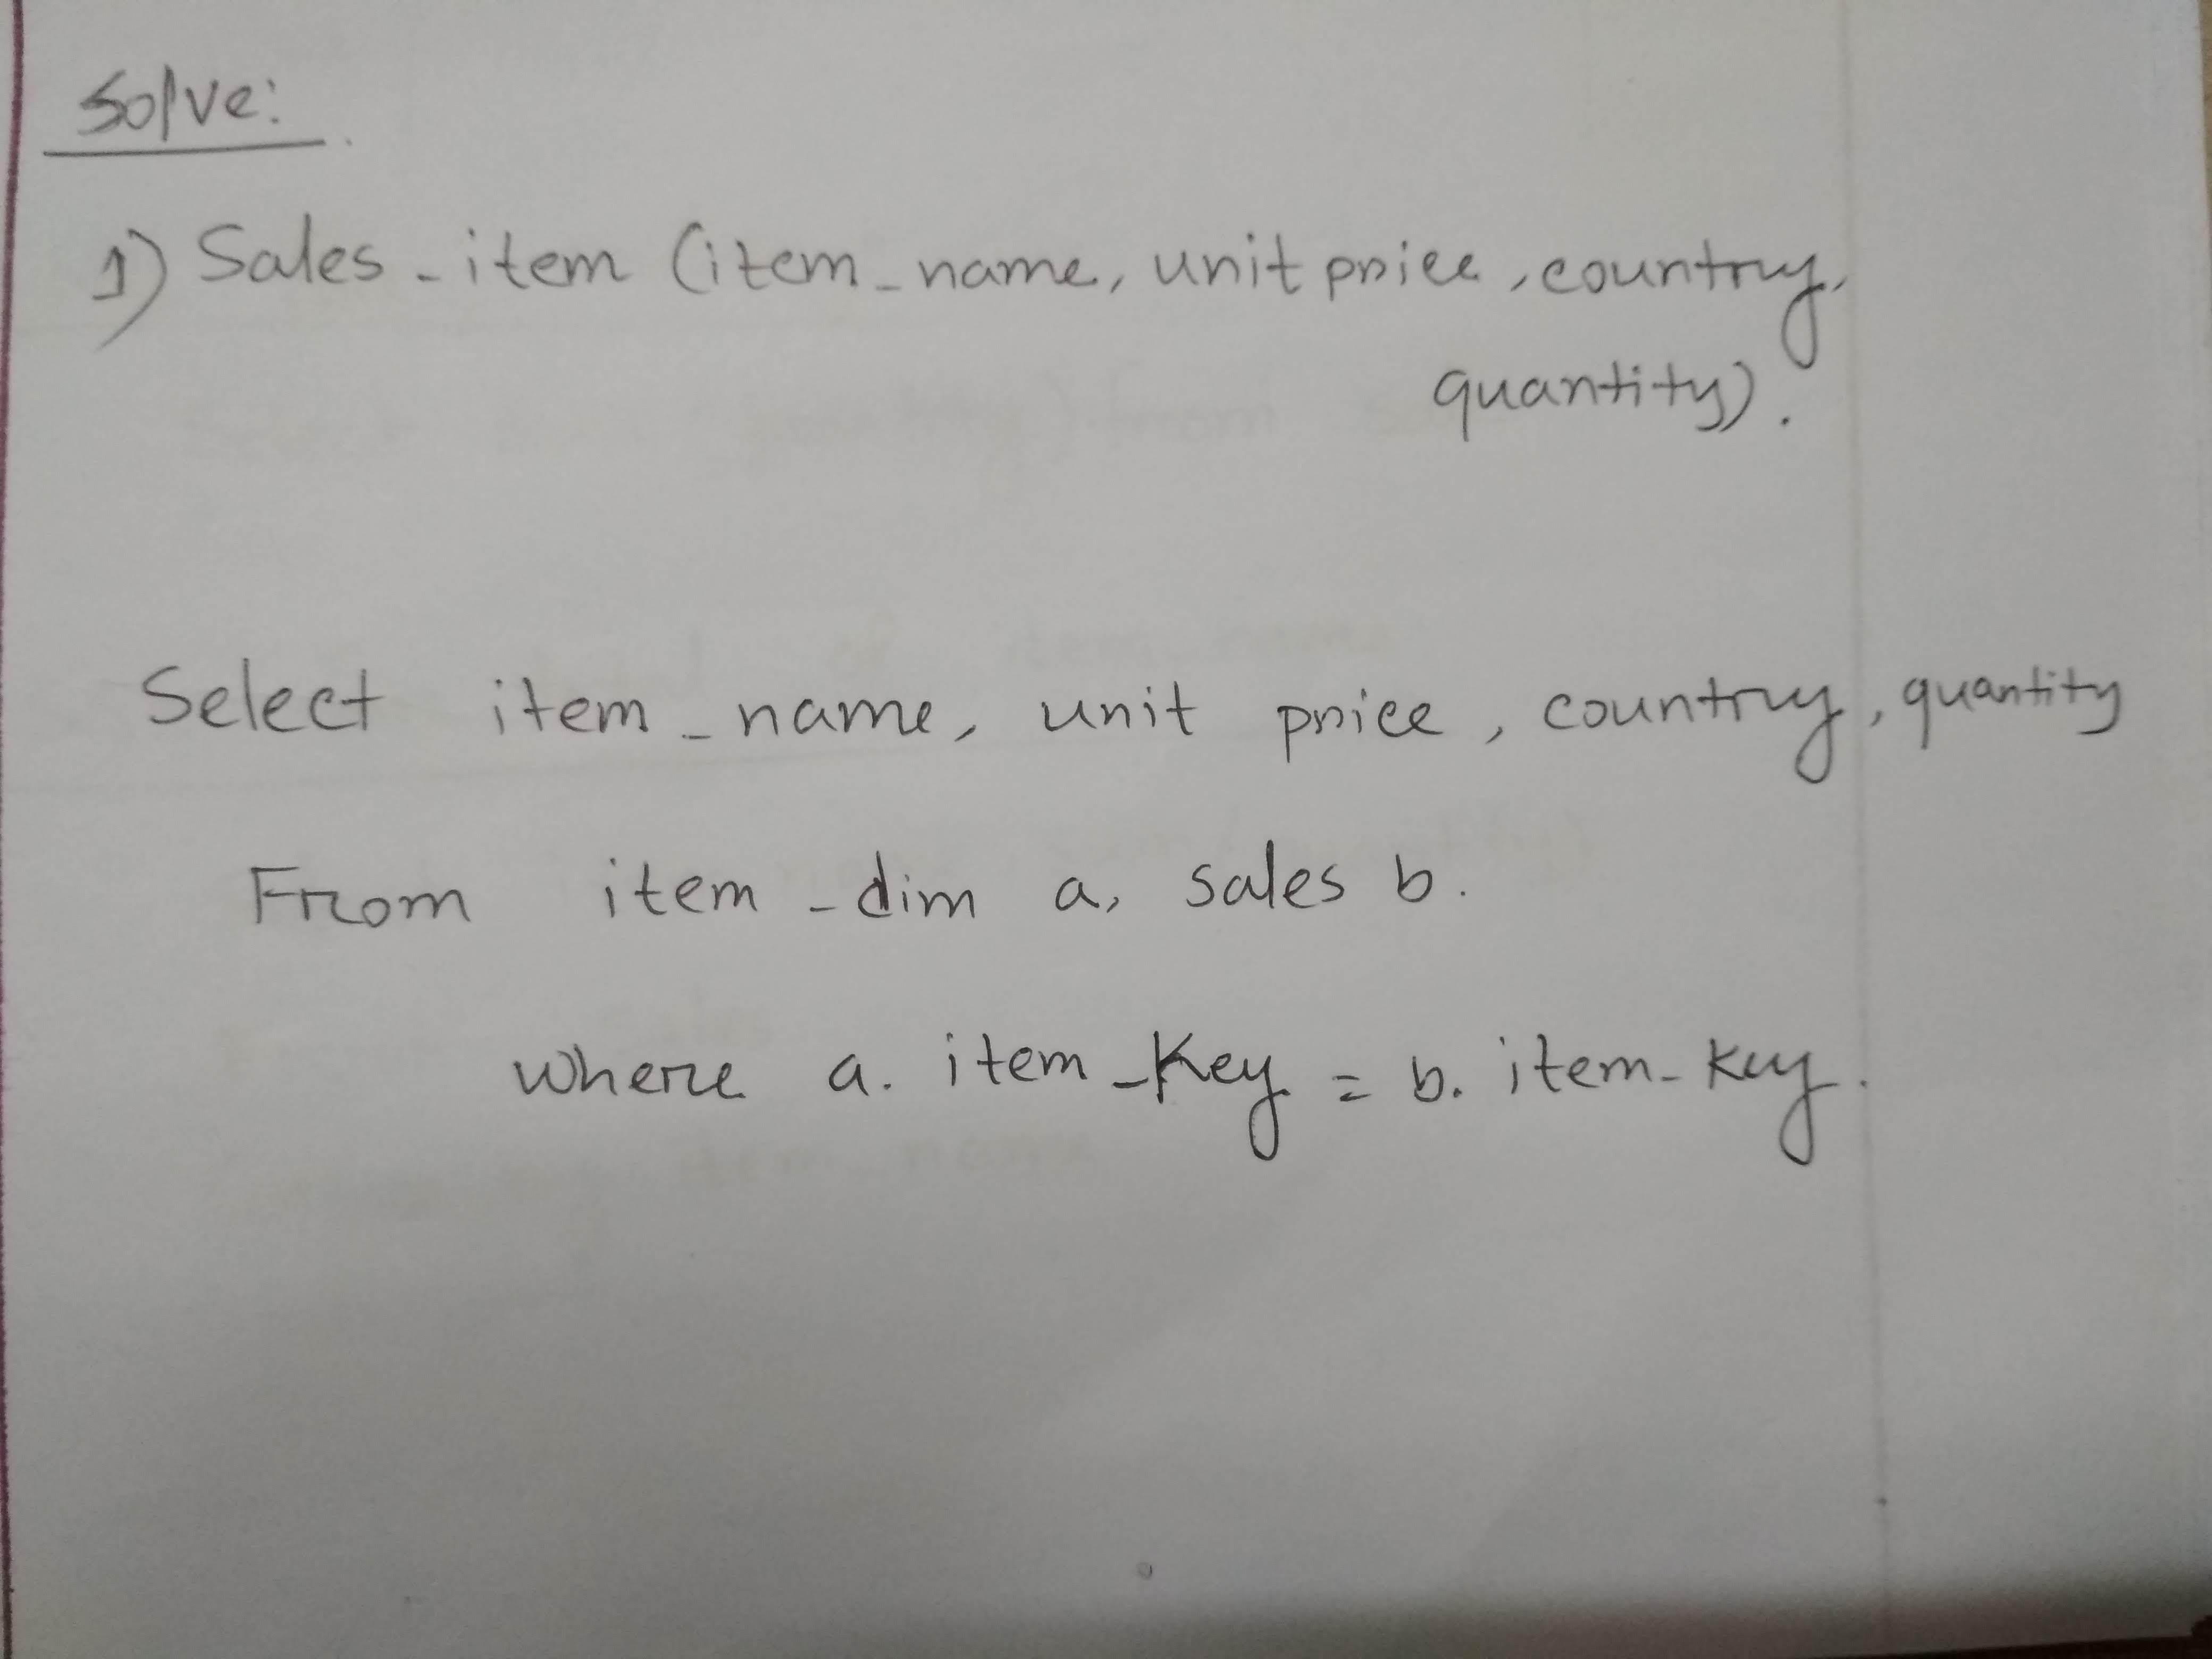 Solve:
1) Sales-item (item_name, unit price, country,
quantity).
Select item_name, unit price, country, quantity
From item-dim a, sales b.
where a. item_Key = b. item-key.